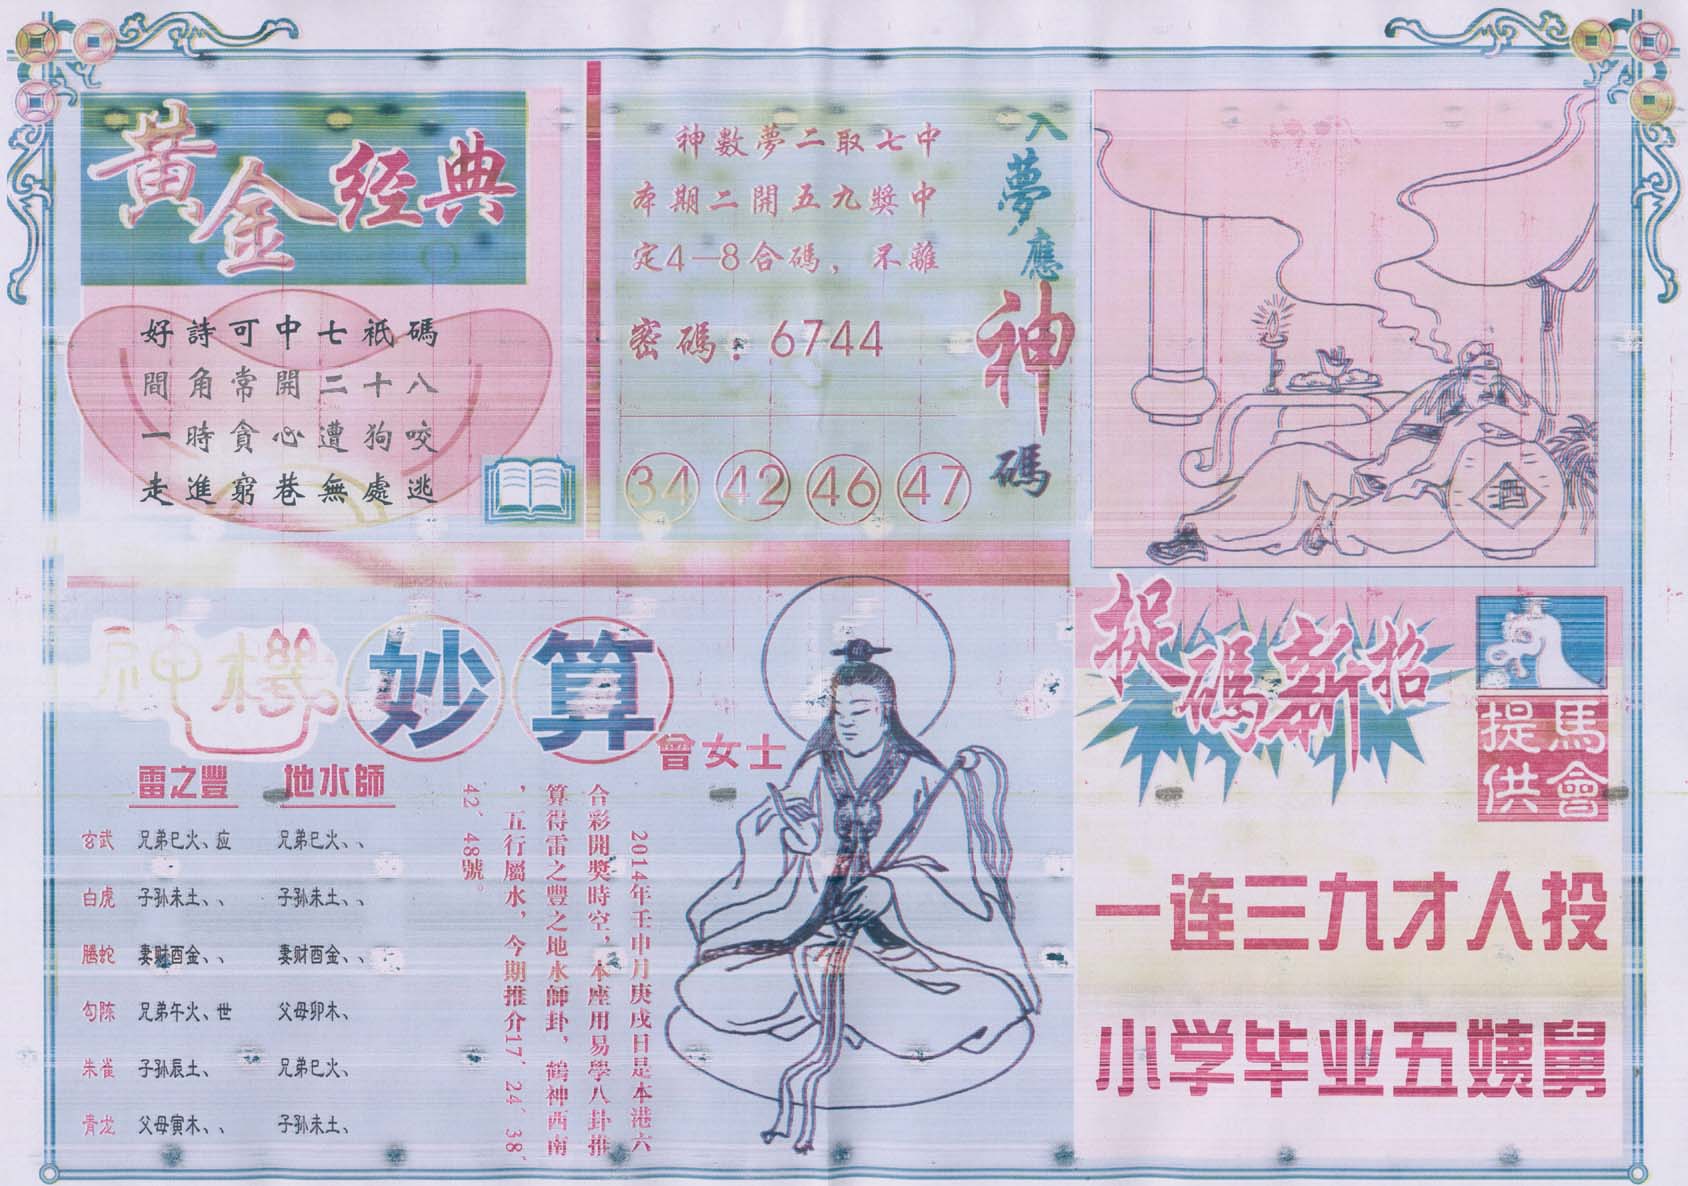 黃金经典
好詩可中七祇碼
間角常開二十八
一時貪心遭狗咬
走進窮巷無處逃
入夢應神碼
神數夢二取七中
本期二開五九獎中
定4—8合碼，不離
密碼：6744
34 42 46 47
酒
神機妙算
曾女士
雷之豐 地水師
玄武 兄弟巳火、应 兄弟巳火、、
白虎 子孙未土、、 子孙未土、、
騰蛇 妻财酉金、、 妻财酉金、、
勾陈 兄弟午火、世 父母卯木、
朱雀 子孙辰土、 兄弟巳火、
青龙 父母寅木、、 子孙未土、
2014年壬申月庚戌日是本港六
合彩開獎時空，本座用易學八卦推
算得雷之豐之地水師卦，鶴神西南
，五行屬水，今期推介17、24、38、
42、48號。
捉碼新招
馬會提供
一连三九才人投
小学毕业五姨舅